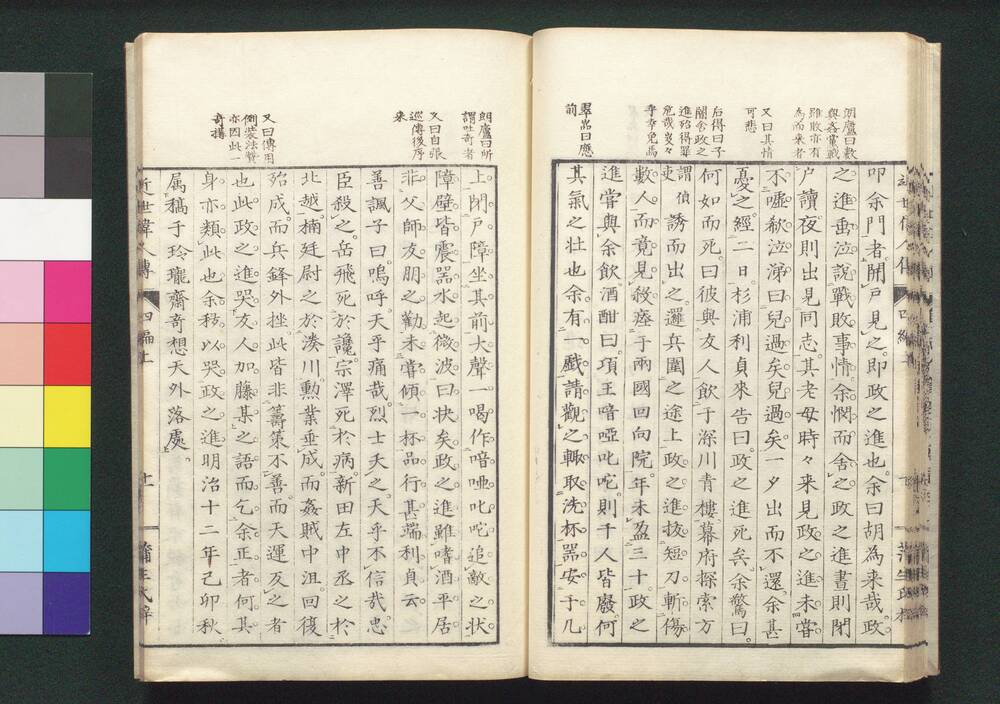 朗廬曰數
與姦黨戰
雖敗亦有
為而来者
又曰其情
可悲
后得曰子
閣舍政之
進殆得罪
危哉岌々
乎幸免焉
翠嵓曰應
前
叩余門者。開戸見之。即政之進也。余曰胡為来哉。政
之進垂泣説戰敗事情。余憫而舍之。政之進晝則閉
户讀。夜則出見同志。其老母時々来見政之進。未嘗
不嘘欷泣涕曰。兒過矣兒過矣。一夕出而不還。余甚
憂之。經二日。杉浦利貞来告曰。政之進死矣。余驚曰。
何如而死。曰彼與友人飲于深川青樓。幕府探索方
謂偵吏
誘而出之。邏兵圍之途上。政之進拔短刀斬傷
數人。而竟見殺。瘞于兩國回向院。年未盈三十。政之
進嘗與余飲。酒酣曰。項王喑啞叱咤。則千人皆廢。何
其氣之壮也。余有一戲請觀之。輙取洗杯器安于几
朗廬曰所
謂吐奇者
又曰自張
巡傳後序
来
又曰傳用
倒裝法贊
亦因此一
奇攜
上。閉戸障坐其前。大聲一喝作喑啞叱咤追敵之状。
障壁皆震。器水起微波。曰快矣。政之進雖嗜酒。平居
非父師友朋之勸。未嘗傾一杯。品行甚端。利貞云。
善諷子曰。嗚呼天乎痛哉。烈士夭之。天乎不信哉。忠
臣殺之。岳飛死於讒。宗澤死於病。新田左中丞之於
北越。楠廷尉之於湊川。勲業垂成。而姦賊中沮。回復
殆成。而兵鋒外挫。此皆非籌策不善。而天運反之者
也。此政之進哭友人加藤某之語。而乞余正者。何其
身亦類此也。余移以哭政之進。明治十二年己卯秋
属稿于玲瓏齋奇想天外落處。
近世偉人傳
四編上
十一
蒲生氏梓